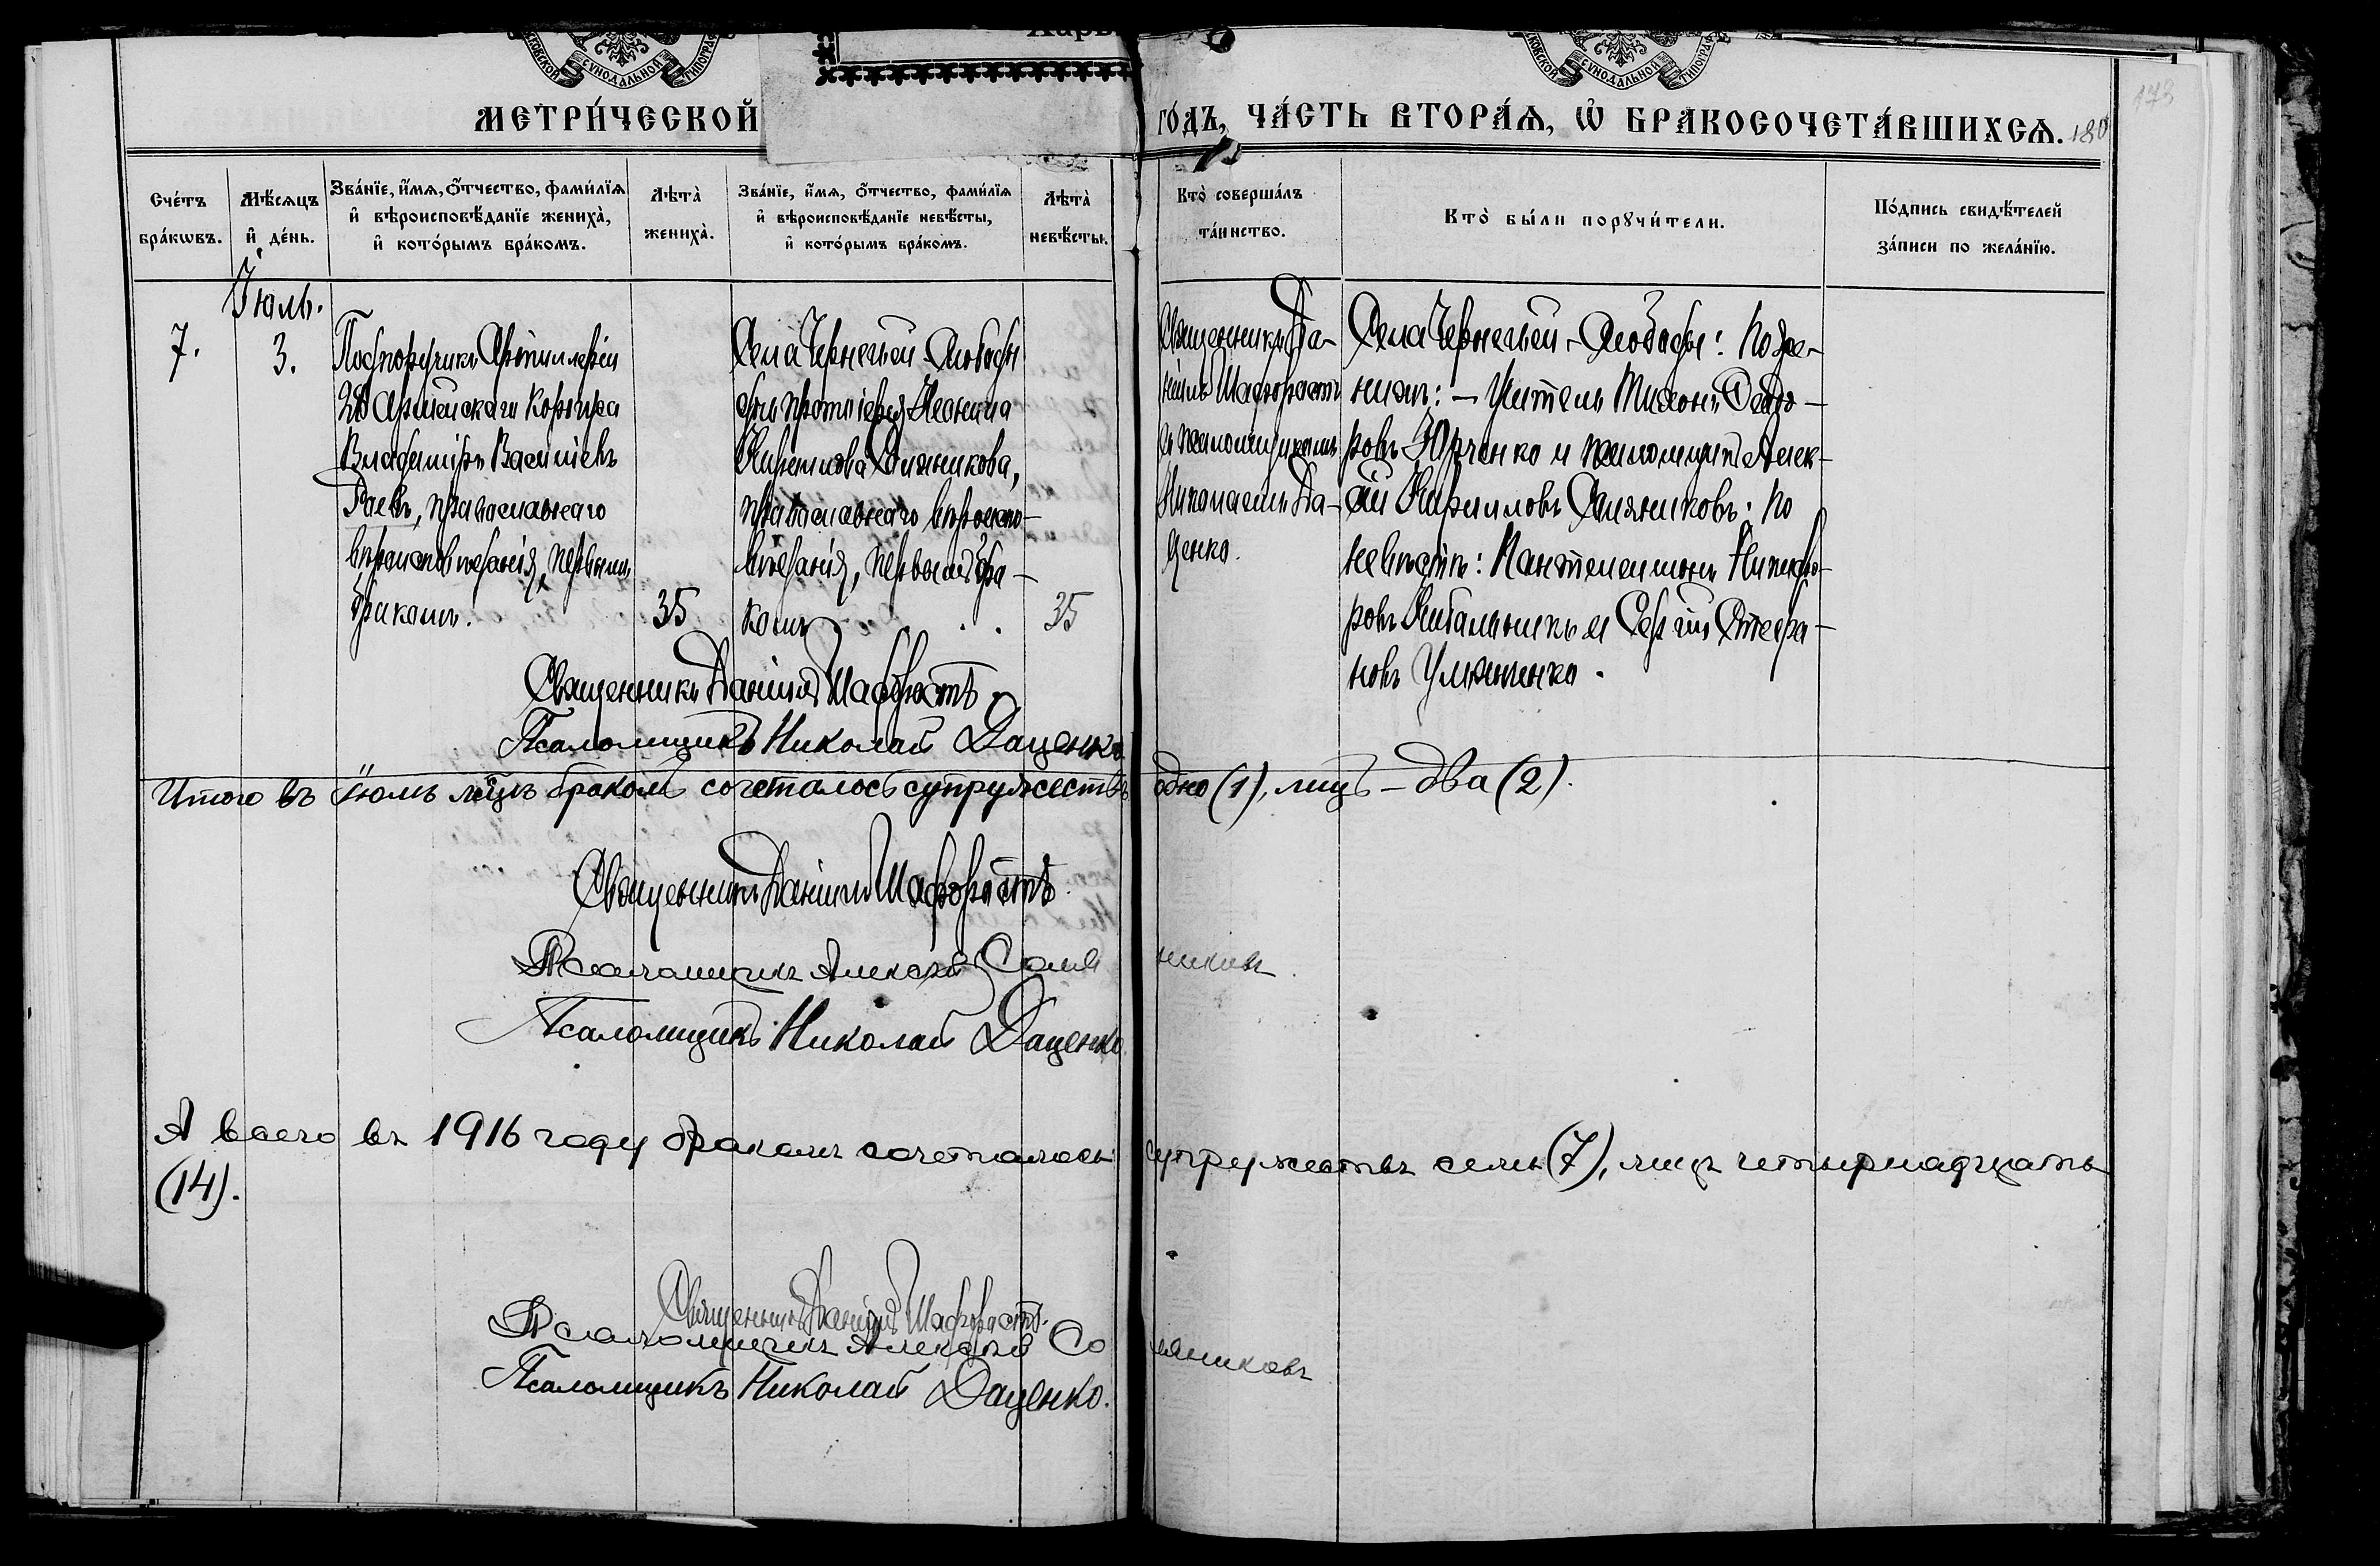 МЕТРИ́ЧЕСКОЙ
го́дъ, ча́сть втора́ѧ, ѽ бракосочета́вшихсѧ. 180
173
Харь
Сче́тъ бра́кωвъ.
Мѣ́сѧцъ и҆ де́нь.
Зва́нїе, и҆́мѧ, ѻ҆́тчество, фами́лїѧ
и҆ вѣроисповѣ́данїе жениха̀,
и҆ кото́рымъ бра́комъ.
Лѣта̀ жениха̀.
Зва́нїе, и҆́мѧ, ѻ҆́тчество, фами́лїѧ
и҆ вѣроисповѣ́данїе невѣ́сты,
и҆ кото́рымъ бра́комъ.
Лѣта̀ невѣ́сты.
Кто̀ соверша́лъ та́инство.
Кто̀ бы́ли порꙋчи́тели.
По́дпись свидѣ́телей
за́писи по жела́нїю.
Іюль.
7.
3.
Подпоручикъ Артиллеріи
Армейскаго Корпуса
Владиміръ Васильевъ
Раевъ, православнаго
вѣроисповѣданія, первымъ
бракомъ.
35
Села Чернечьей-Слободы
Кириллова Соляникова,
православнаго вѣроиспо-
вѣданія, первымъ бра-
комъ
35
Священникъ Да-
ніилъ Шафорастъ
съ псаломщикомъ
Николаемъ Да-
ценко.
Села Чернечьей-Слободы: По же-
нихѣ: – Учитель Тихонъ Федо-
ровъ Юрченко и псаломщикъ Алек-
сѣй Кирилловъ Соляниковъ; по
невѣстѣ: Пантелеимонъ Никифо-
ровъ Кибальникъ и Сергій Стефа-
новъ Ульянченко.
Священникъ Даніилъ Шафорастъ
Псаломщикъ Николай Даценко
Итого въ іюлѣ мѣсяцѣ бракомъ сочеталось супружествъ одно (1), лицъ – два (2).
Священникъ Даніилъ Шафорастъ.
Псаломщикъ Алексѣй Соляниковъ
Псаломщикъ Николай Даценко
А всего въ 1916 году бракомъ сочеталось супружествъ семь (7), лицъ четырнадцать
(14).
Священникъ Даніилъ Шафорастъ.
Псаломщикъ Алексѣй Соляниковъ
Псаломщикъ Николай Даценко.